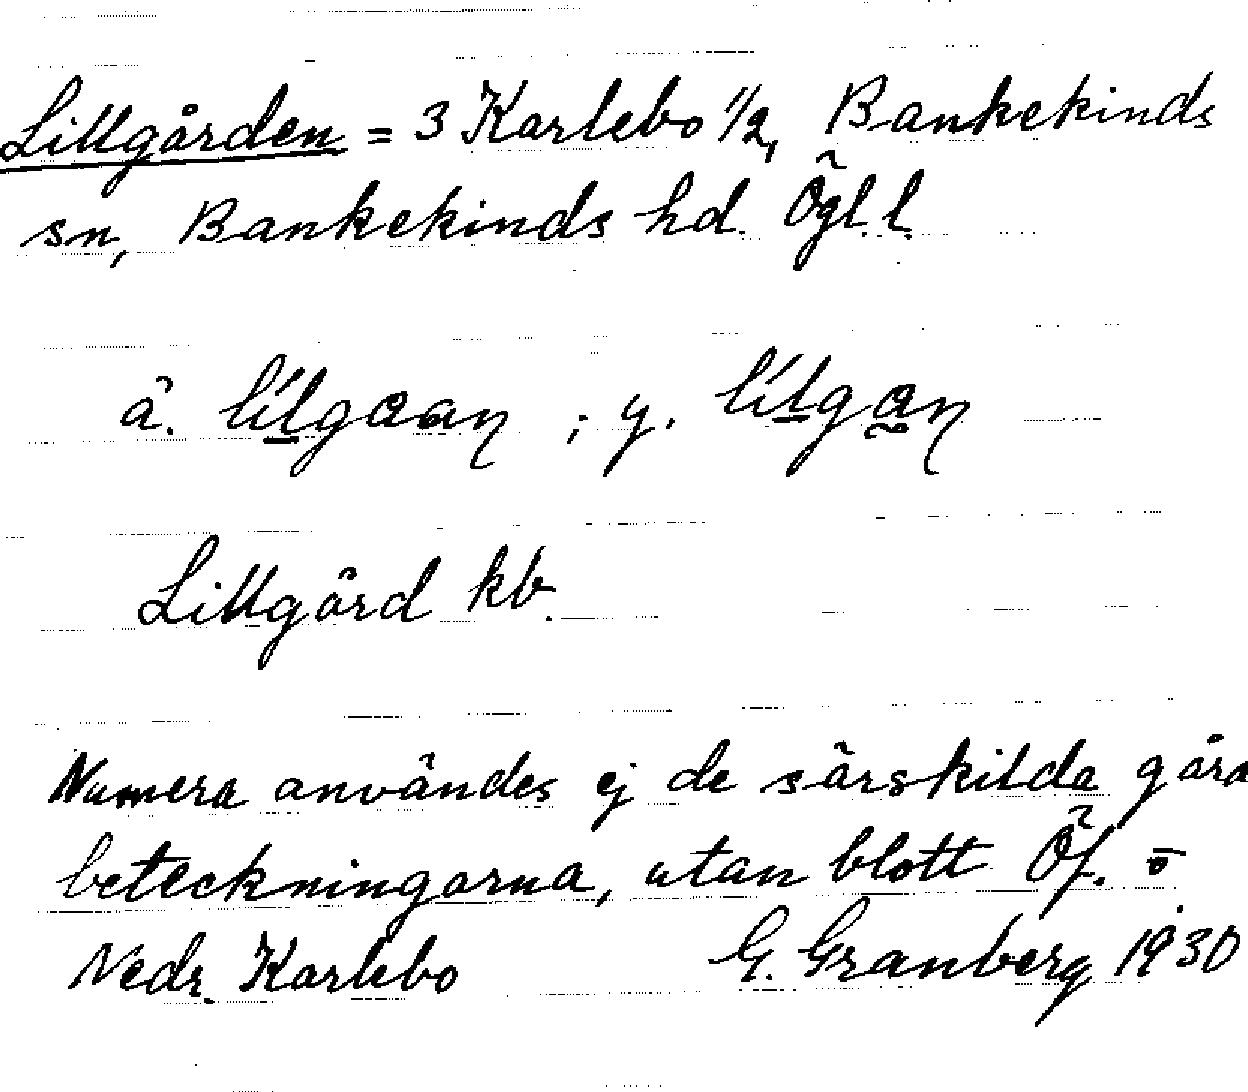 Lillgården = 3 Karlebo 1/2, Bankekinds
sn, Bankekinds hd. Ögl. l.
ä. lílgaan ; y. lílgan
Lillgård kb.
Numera användes ej de särskilda gård
beteckningarna, utan blott Öf. o
Nedr. Karlebo G. Granberg 1930